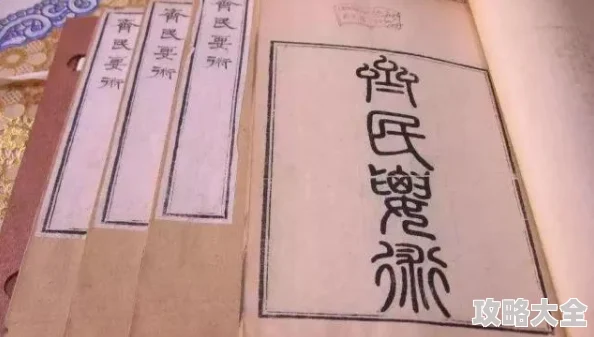 齊民要術
齊民要術
齊民要術
齊民要術
攻略大全